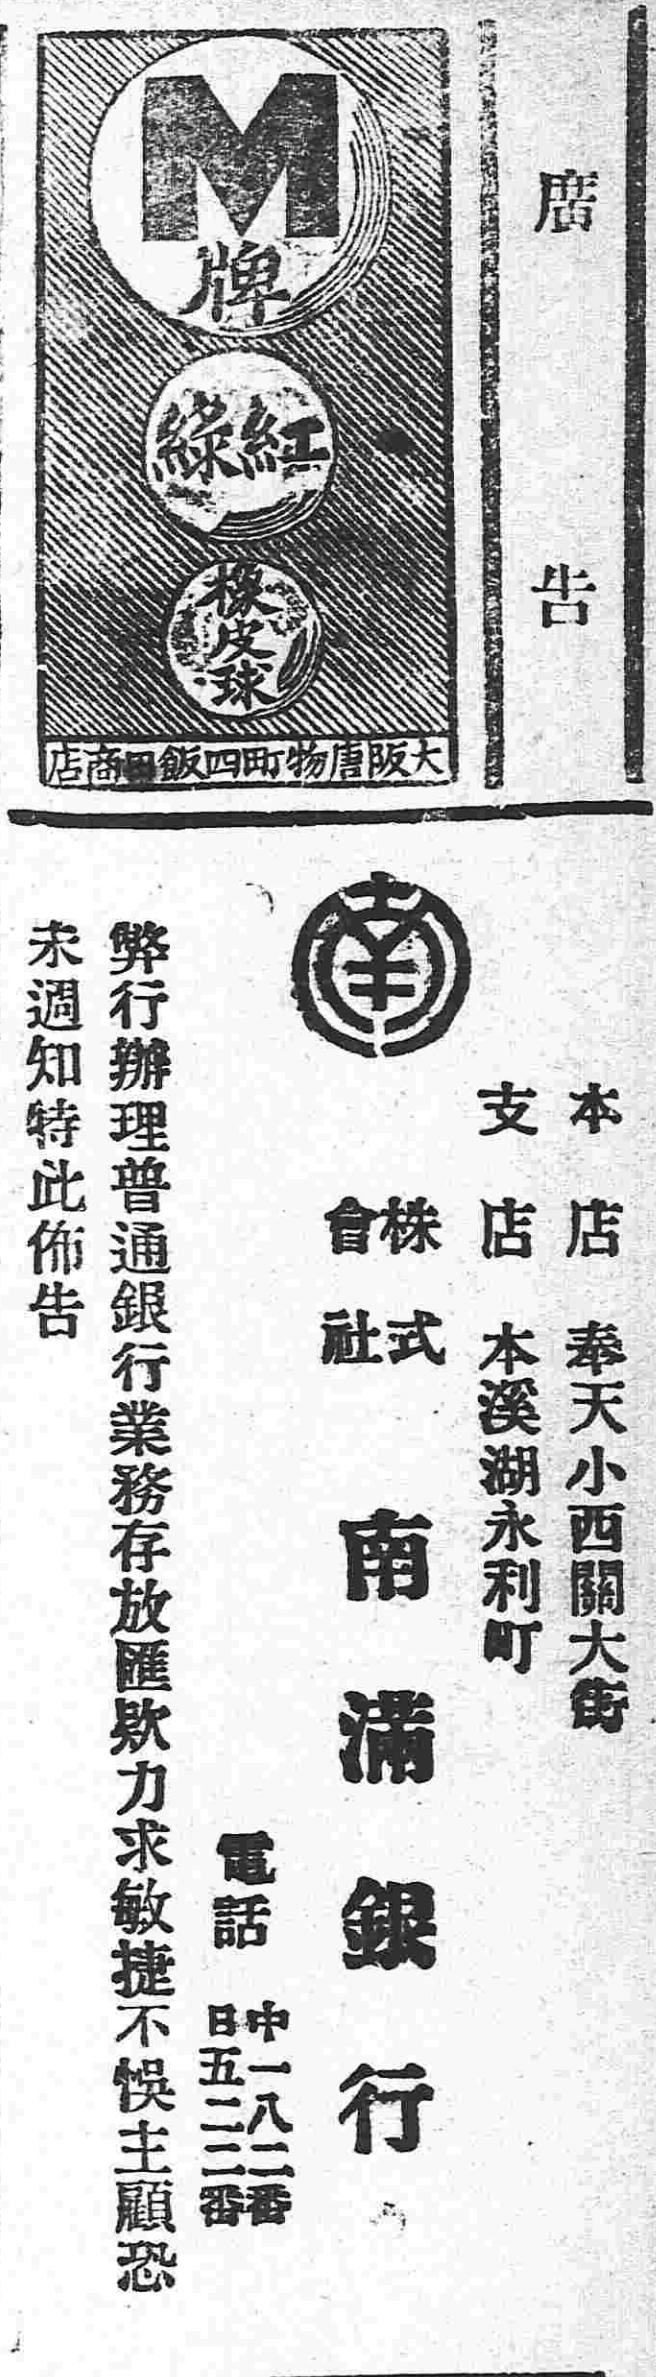 廣告
M
牌
紅綠
橡皮球
大阪唐物町四飯田商店
本店 奉天小西關大街
支店 本溪湖永利町
南
株式會社 南滿銀行
電話 中一八二番
日五二二番
弊行辦理普通銀行業務存放匯欵力求敏捷不悞主顧恐
未週知特此佈告